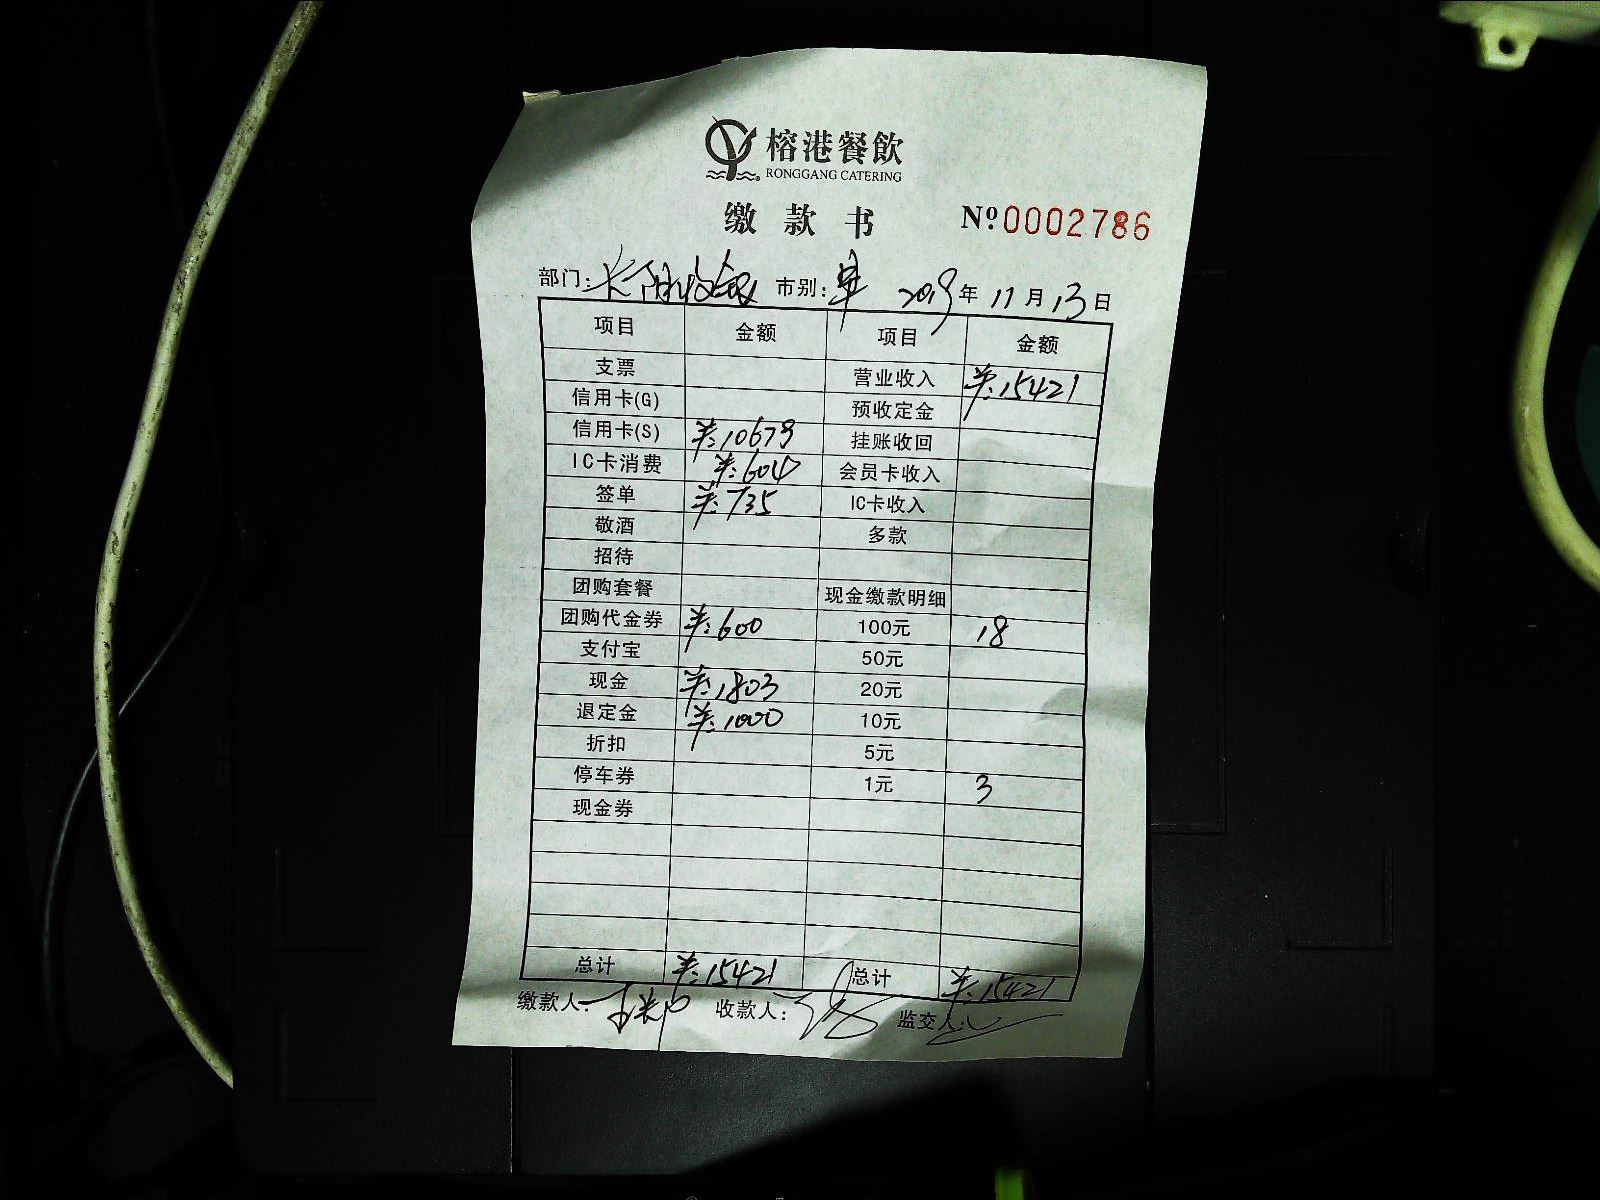 榕港餐飲
RONGGANG CATERING
缴款书 Nº0002786
部门：长阳收银 市别： 2019年11月13日
项目 金额 项目 金额
支票 营业收入 ¥:15421
信用卡(G) 预收定金
信用卡(S) ¥:10679 挂账收回
IC卡消费 ¥:604 会员卡收入
签单 ¥:735 IC卡收入
敬酒 多款
招待
团购套餐 现金缴款明细
团购代金券 ¥:600 100元 18
支付宝 50元
现金 ¥:1803 20元
退定金 ¥:1000 10元
折扣 5元
停车券 1元 3
现金券
总计 ¥:15421 总计 ¥:15421
缴款人： 收款人： 监交人：